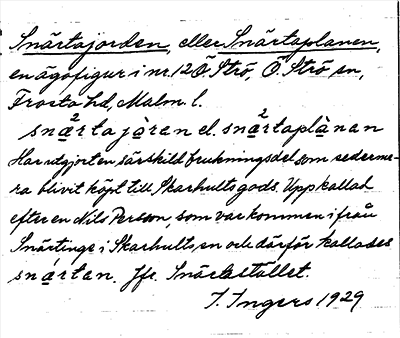 Snärtajorden, eller Snärtaplanen,
en ägofigur i nr. 12 Ö Strö, Ö. Strö sn,
Frosta hd, Malm. l.
snæ²rtajòran el. snæ²rtaplànan
Har utgjort en särskild brukningsdel som sederme-
ra blivit köpt till Skarhults gods. Uppkallad
efter en Nils Persson, som var kommen ifrån
Snärtinge i Skarhults sn och därför kallades
snærtan. Jfr. Snärtastället.
I. Ingers 1929